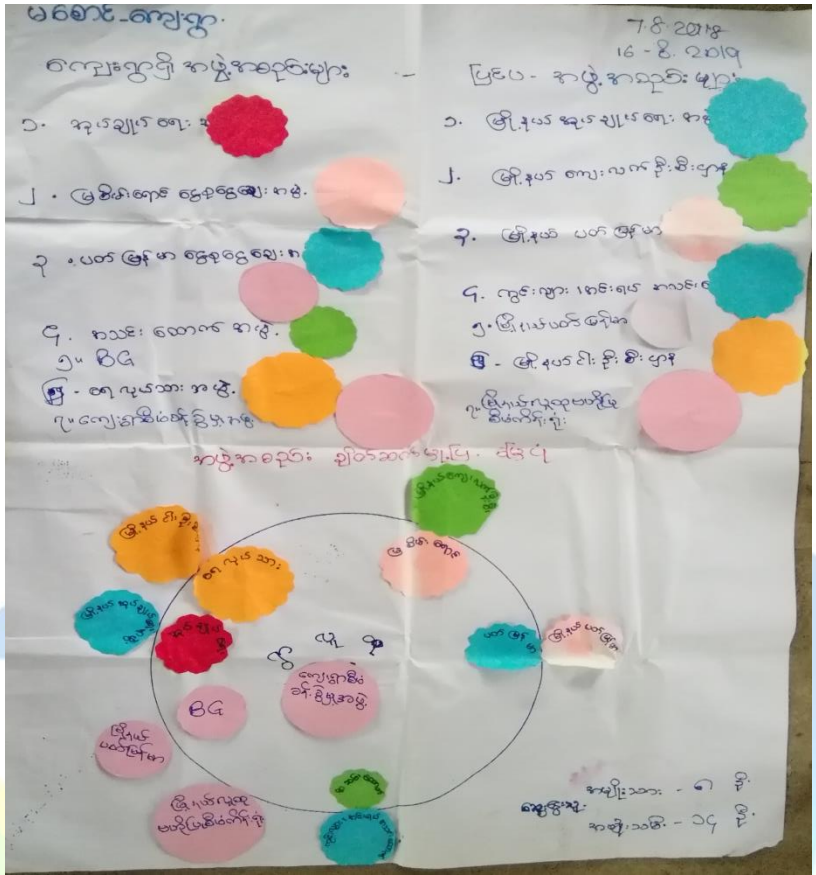 မစောင်-ကျေးရွာ
7.8.2018
16-8.2019
ကျေးရွာရှိ အဖွဲ့အစည်းများ -
၁. အုပ်ချုပ်ရေး
၂. မြစိမ်းရောင် ငွေစုငွေချေး အဖွဲ့.
၃. ပတ်မြန်မာ ငွေစုငွေချေး
၄. အသင်းထောက် အဖွဲ့.
၅။ BG
၆ - ရေလုပ်သား အဖွဲ့.
၇။ ကျေးရွာစီမံခန့်ခွဲမှုအဖွဲ့
ပြင်ပ - အဖွဲ့အစည်းများ
၁. မြို့နယ် အုပ်ချုပ်ရေး
၂. မြို့နယ် ကျေးလက် ဦးစီးဌာန
၃. မြို့နယ် ပတ်မြန်မာ
၄.
၅. မြို့နယ်ပတ်မြန်မာ
၆ - မြို့နယ် ငါးဦးစီးဌာန
၇။ မြို့နယ်လူထုဗဟိုပြု
စီမံကိန်းရုံး
အဖွဲ့အစည်း ချိတ်ဆက်မှုပြ ပုံ
မြို့နယ်ကျေးလက်
မြို့နယ် ငါးဦးစီး
မြစိမ်းရောင်
ရေလုပ်သား
မြို့နယ် အုပ်ချုပ်ရေး
အုပ်ချုပ်ရေး
လူထု
ပတ်မြန်မာ
မြို့နယ် ပတ်မြန်မာ
ကျေးရွာစီမံ
ခန့်ခွဲမှုအဖွဲ့
BG
မြို့နယ်
ပတ်မြန်မာ
မြို့နယ်လူထု
ဗဟိုပြုစီမံကိန်းရုံး
ဆွေးနွေးသူ
အမျိုးသား - ၈ ဦး
အမျိုးသမီး - ၁၄ ဦး